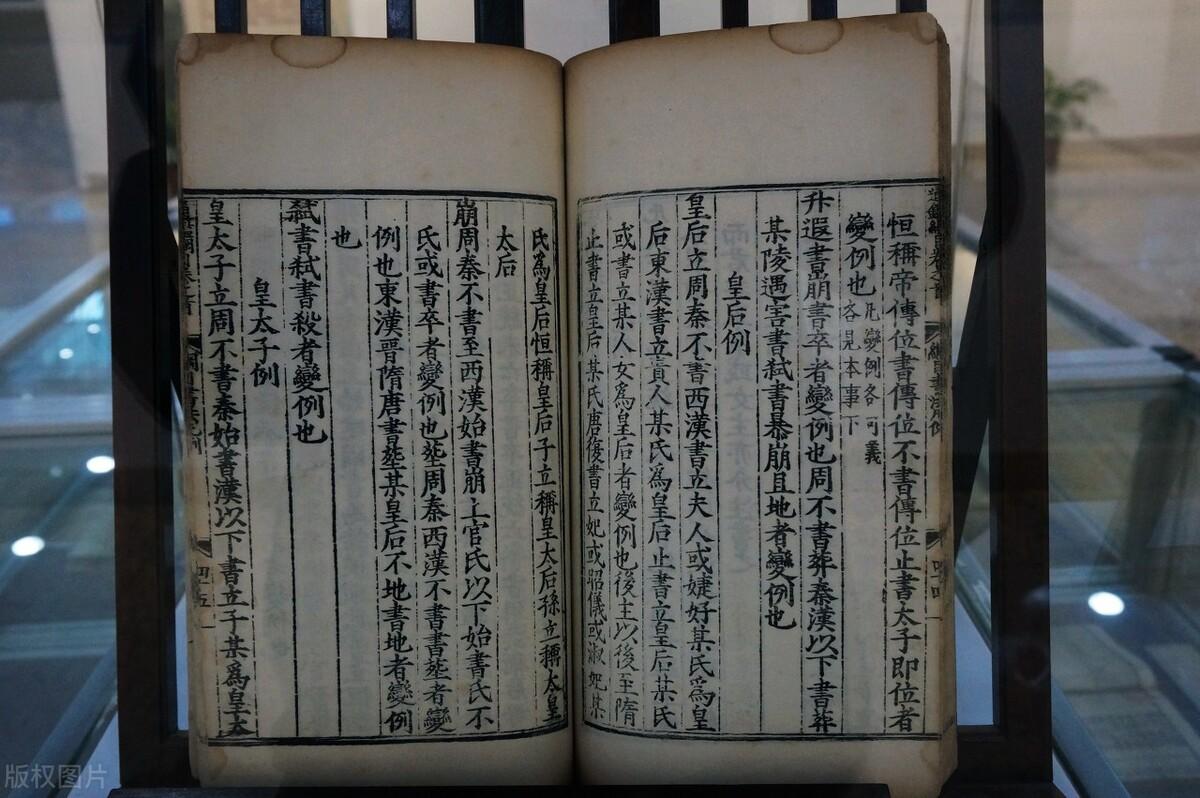 恒稱帝傳位書傳位不書傳位止書太子即位者
變例也
凡變例各
各見本事下
升遐書崩書卒者變例也周不書葬秦漢以下書葬
某陵遇害書弒書暴崩且地者變例也
皇后例
皇后立周秦不書西漢書立夫人或婕妤某氏為皇
后東漢書立貴人某氏為皇后止書立皇后某氏
或書立某人女為皇后者變例也後主以後至隋
止書立皇后某氏唐復書立妃或昭儀或淑妃某
氏為皇后恒稱皇后子立稱皇太后孫立稱太皇
太后
崩周秦不書至西漢始書崩上官氏以下始書氏不
氏或書卒者變例也塟周秦西漢不書書塟者變
例也東漢晉隋唐書塟某皇后不地書地者變例
也
弒書弒書殺者變例也
皇太子例
皇太子立周不書秦始書漢以下書立子某為皇太
版权图片